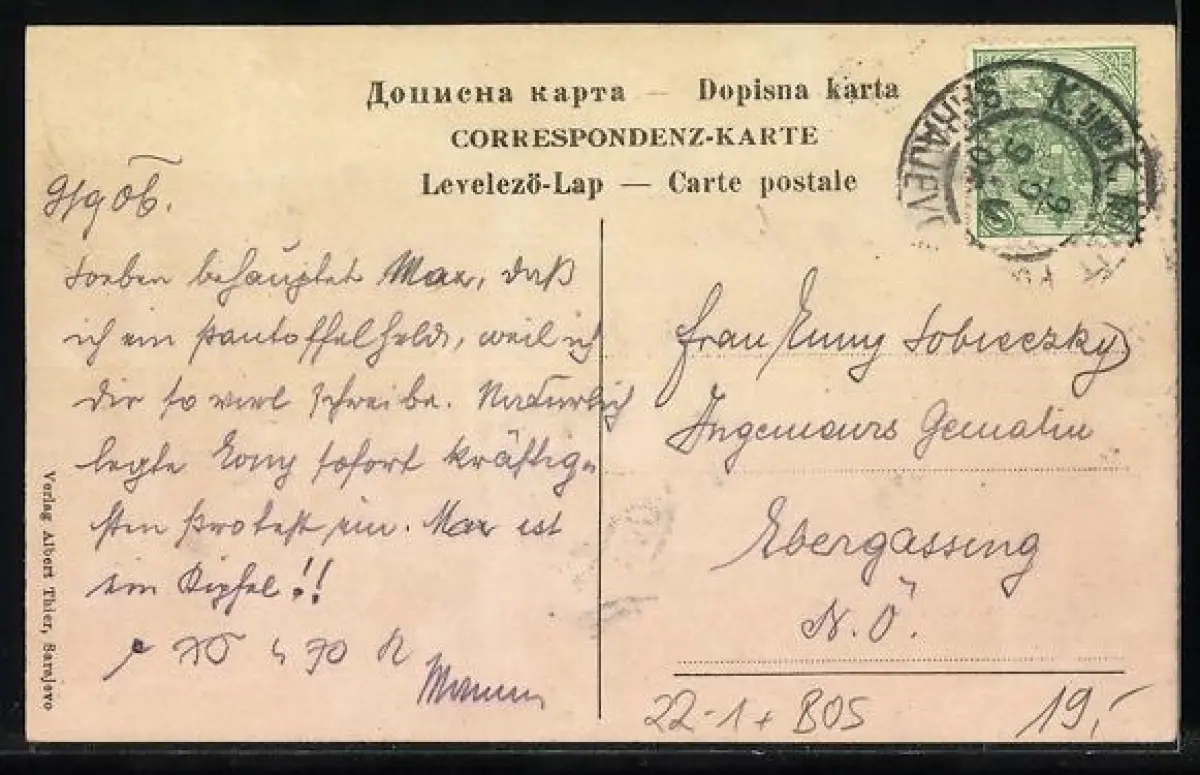 Дописна карта — Dopisna karta
CORRESPONDENZ-KARTE
Levelező-Lap — Carte postale
K. und K.
SARAJEVO
9/9 06.
Soeben behauptet Max, daß
ich ein Pantoffelheld, weil ich
Dir so viel schreibe. Natürlich
legte Tony sofort kräftig-
sten Protest ein. Max ist
ein Kipfel!!
Frau Emmy Sobieczky
Ingenieurs Gemalin
Ebergassing
N. Ö.
Verlag Albert Thier, Sarajevo
22-1+ BOS
19,-